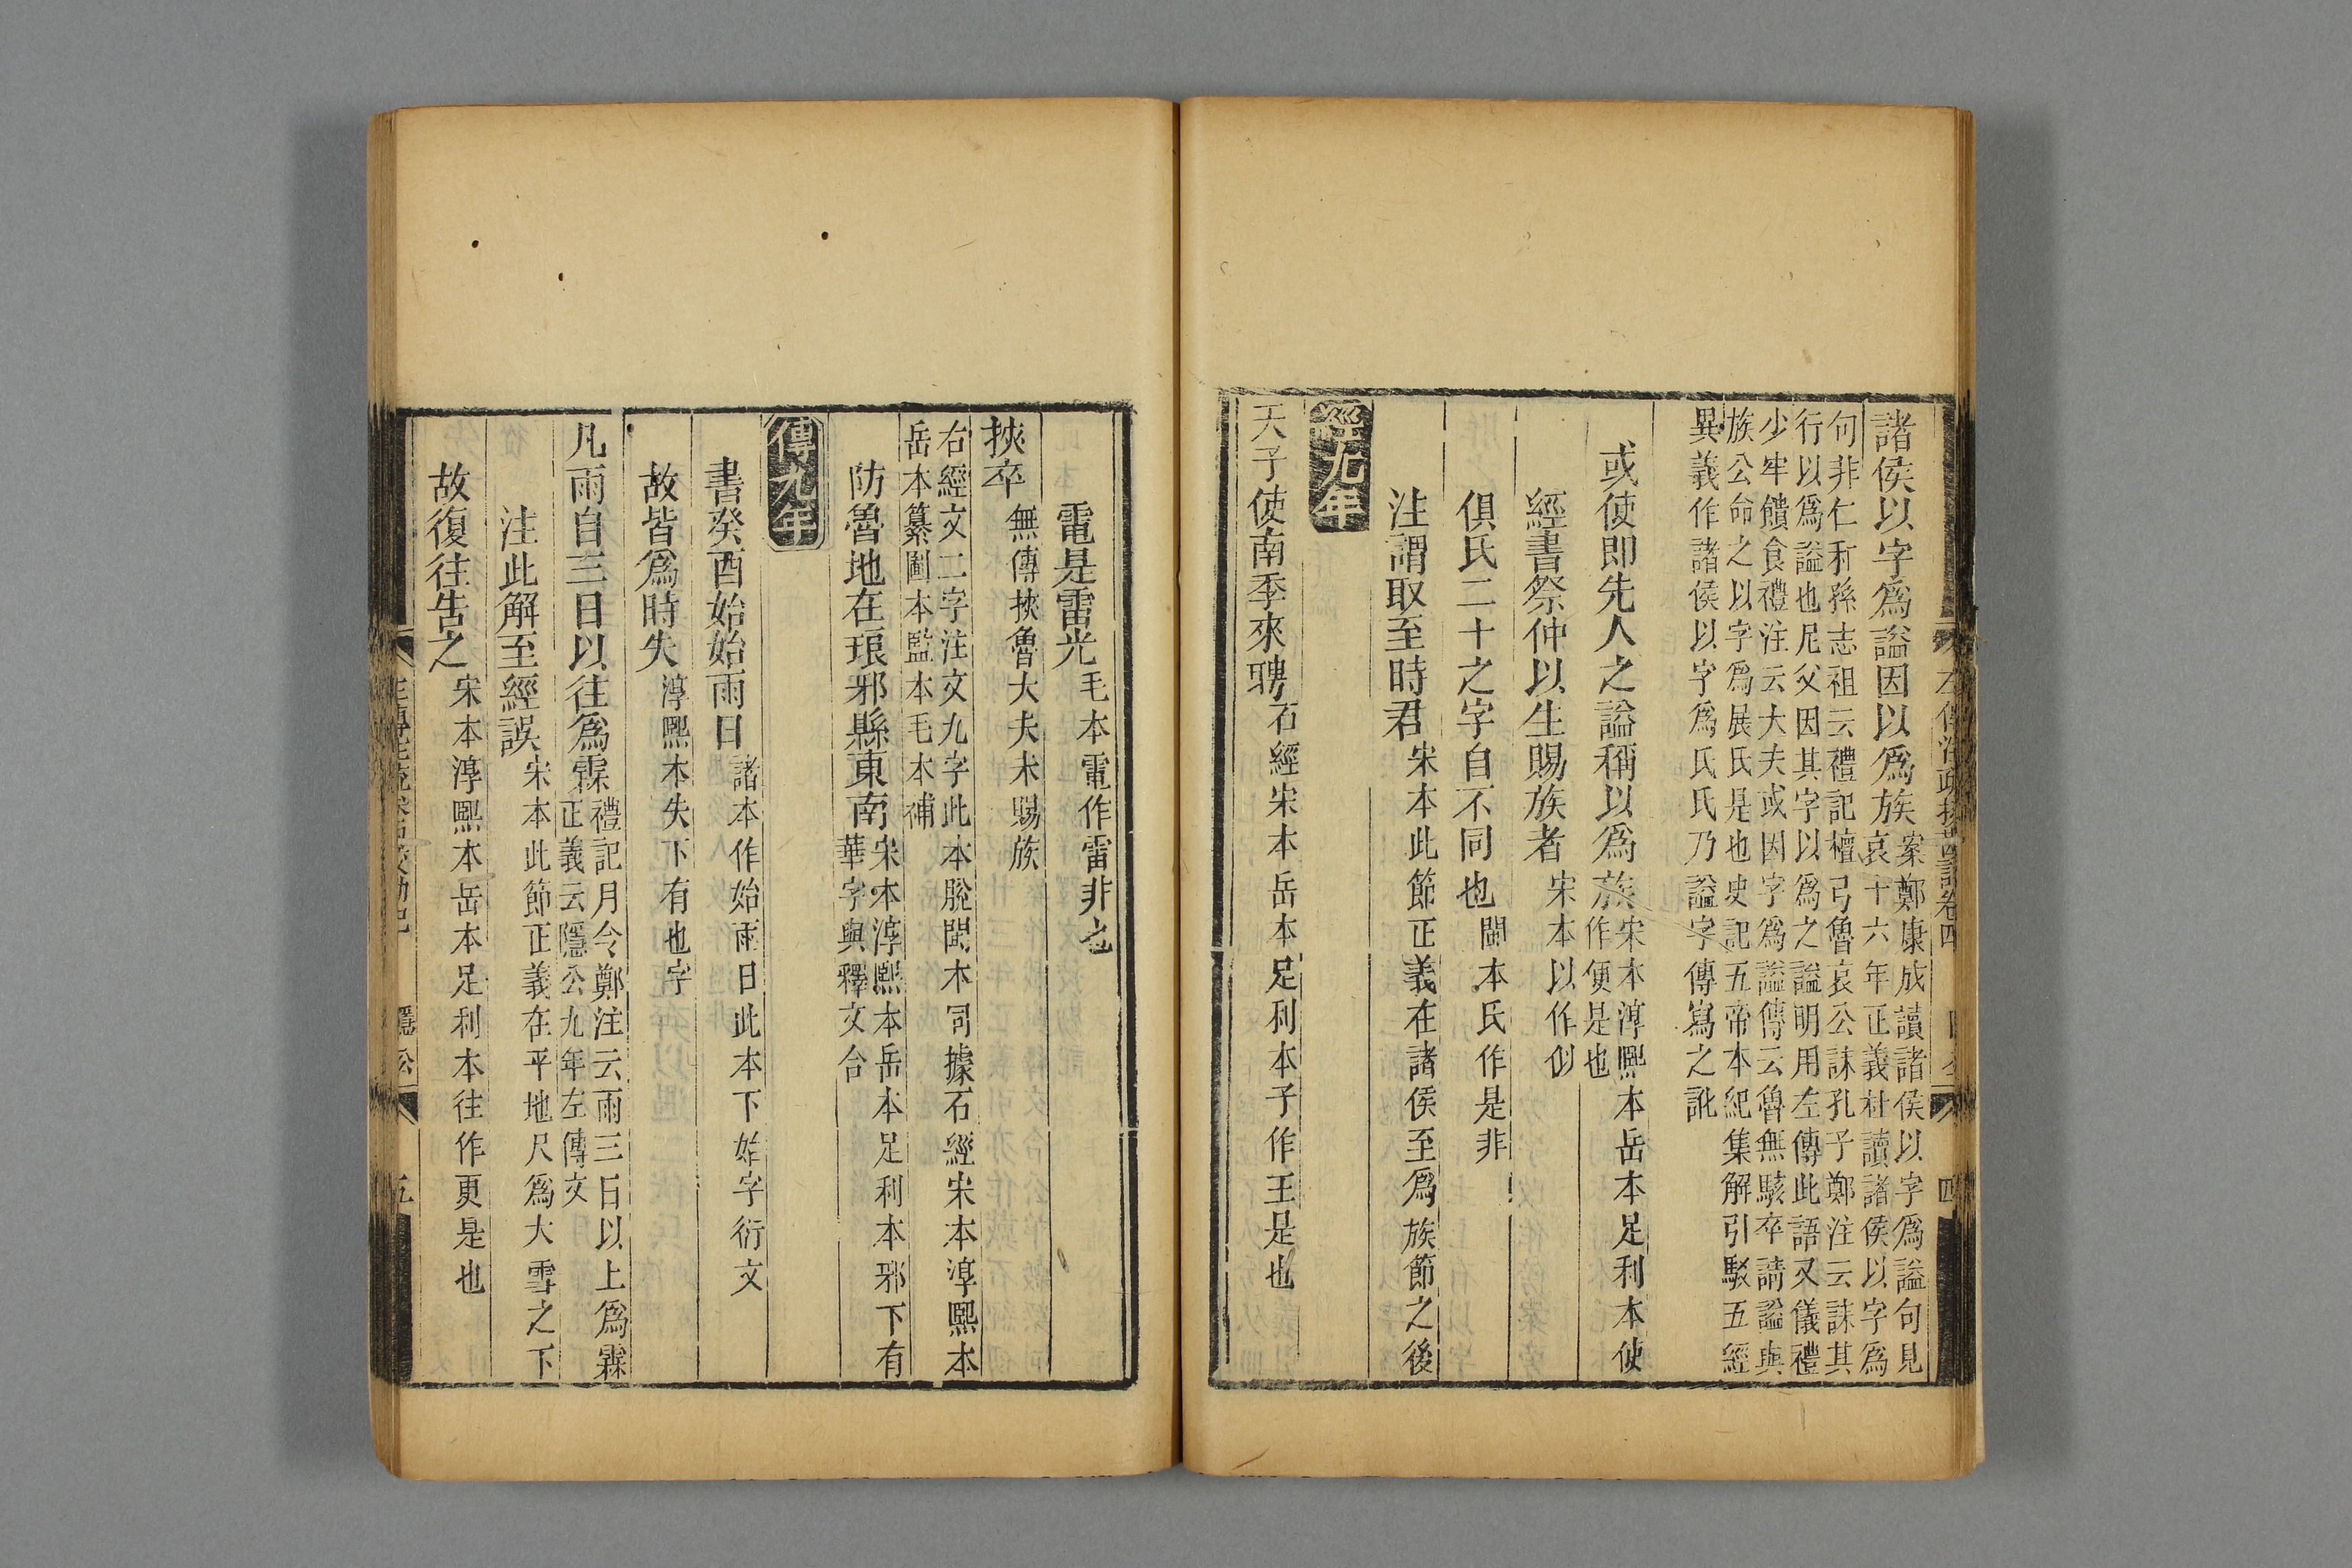 諸侯以字爲謚因以爲族案鄭康成讀諸侯以字爲謚句見
哀十六年正義杜讀諸侯以字爲
句非仁和孫志祖云禮記檀弓魯哀公誄孔子鄭注云誄其
行以爲謚也尼父因其字以爲之謚明用左傳此語又儀禮
少牢饋食禮注云大夫或因字爲謚傳云魯無駭卒請謚與
族公命之以字爲展氏是也史記五帝本紀集解引駁五經
異義作諸侯以字爲氏氏乃謚字傳寫之訛
或使即先人之謚稱以爲族宋本淳熙本岳本足利本使
作便是也
經書祭仲以生賜族者宋本以作似
俱氏二十之字自不同也閩本氏作是非
注謂取至時君宋本此節正義在諸侯至爲族節之後
經九年
天子使南季來聘石經宋本岳本足利本子作王是也
電是雷光毛本電作雷非也
挾卒無傳挾魯大夫未賜族
右經文二字注文九字此本脫閩本同據石經宋本淳熙本
岳本纂圖本監本毛本補
防魯地在琅邪縣東南宋本淳熙本岳本足利本邪下有
華字與釋文合
傳九年
書癸酉始始雨日諸本作始雨日此本下始字衍文
故皆爲時失淳熙本失下有也字
凡雨自三日以往爲霖禮記月令鄭注云雨三日以上爲霖
正義云隱公九年左傳文
注此解至經誤宋本此節正義在平地尺爲大雪之下
故復往告之宋本淳熙本岳本足利本往作更是也